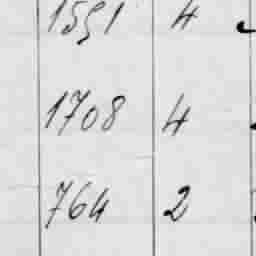 1551 4
1708 4
764 2